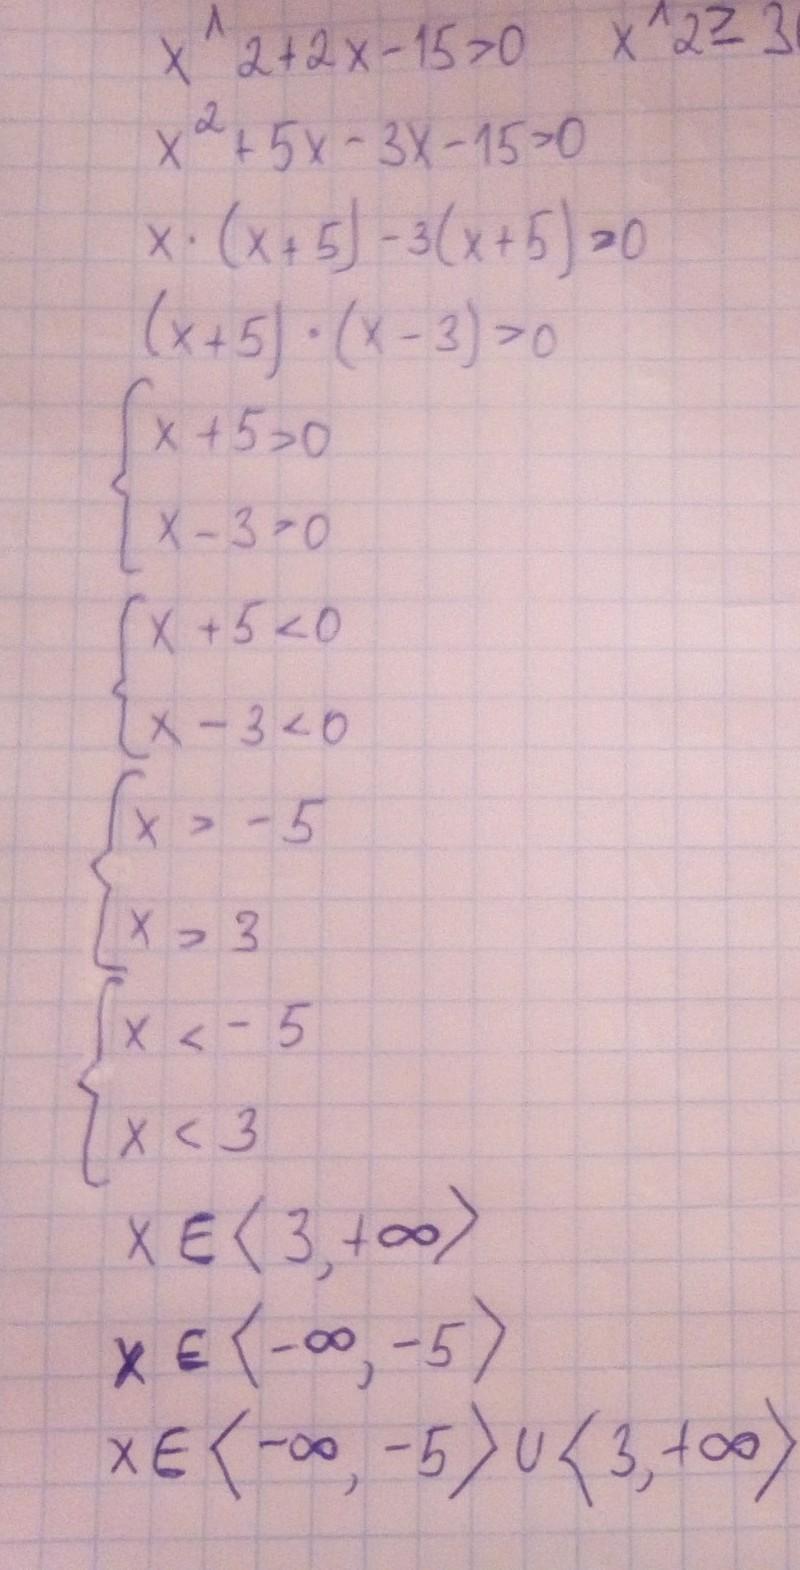 x^2+2x-15>0 x^2≥3
x²+5x-3x-15>0
x·(x+5)-3(x+5)>0
(x+5)·(x-3)>0
{x+5>0
x-3>0
{x+5<0
x-3<0
{x>-5
x>3
{x<-5
x<3
x∈⟨3,+∞⟩
x∈⟨-∞,-5⟩
x∈⟨-∞,-5⟩∪⟨3,+∞⟩